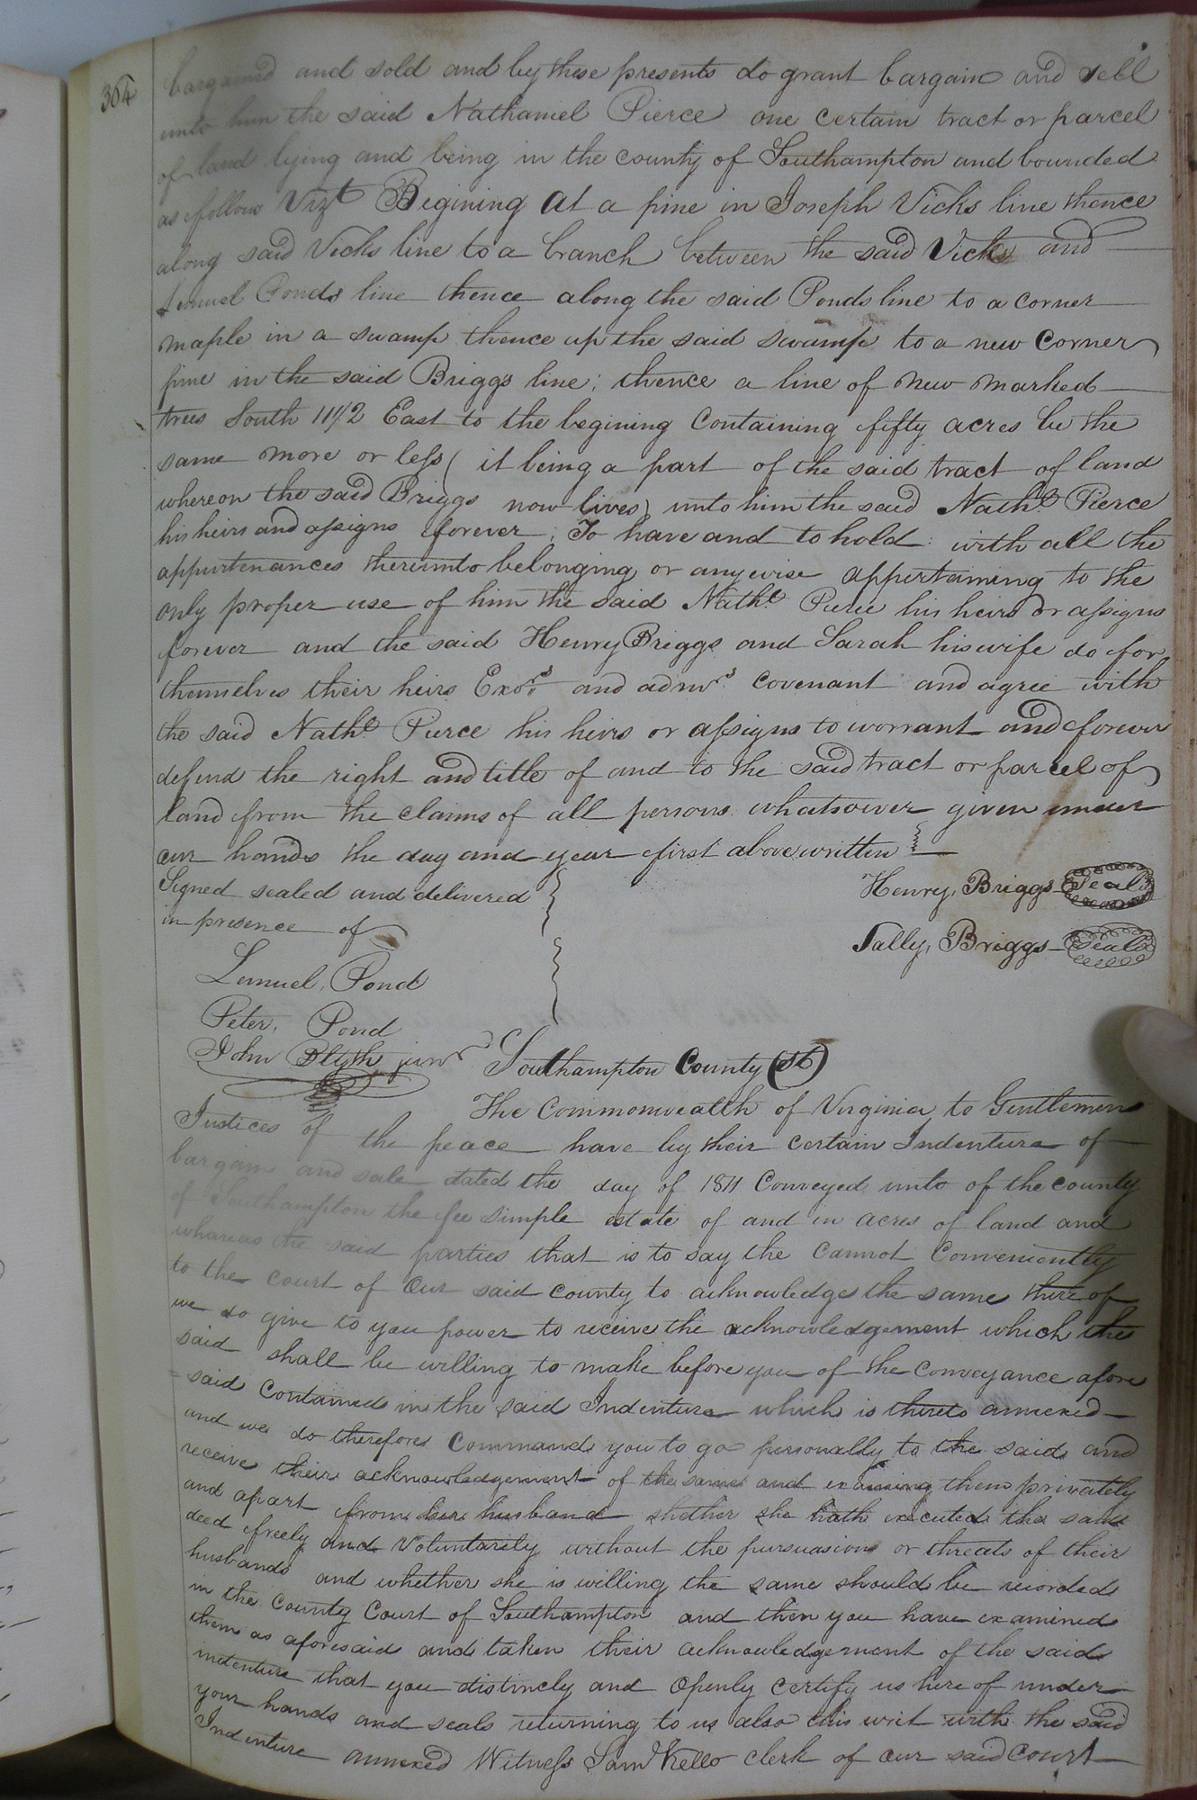 364
bargained and sold and by these presents do grant bargain and sell
unto him the said Nathaniel Pierce one certain tract or parcel
of land lying and being in the county of Southampton and bounded
as follow Vizt Begining at a pine in Joseph Vicks line thence
along said Vicks line to a branch between the said Vicks and
Lemuel Ponds line thence along the said Ponds line to a corner
maple in a swamp thence up the said swamp to a new corner
pine in the said Briggs line; thence a line of new marked
trees South 11 1/2 East to the begining containing fifty acres be the
same more or less ( it being a part of the said tract of land
whereon the said Briggs now lives) unto him the said Nathl. Pierce
his heirs and assigns forever; To have and to hold with all the
appurtenances thereunto belonging or anywise appertaining to the
only proper use of him the said Nathl. Pierce his heirs or assigns
forever and the said Henry Briggs and Sarah his wife do for
themselves their heirs Exors and admrs covenant and agree with
the said Nathl. Pierce his heirs or assigns to warrant and forever
defend the right and title of and to the said tract or parcel of
land from the claims of all persons whatsoever given under
our hands the day and year first above written
Signed sealed and delivered
in presence of
Henry Briggs Seal
Sally Briggs Seal
Lemuel Pond
Peter Pond
John Blyth junr
Southampton County (St)
The Commonwealth of Virginia to Gentlemen
Justices of the peace have by their certain Indenture of
bargain and sale dated the day of 1811 Conveyed unto of the county
of Southampton the fee simple estate of and in acres of land and
whereas the said parties that is to say the cannot conveniently
to the court of our said county to acknowledge the same there of
we do give to you power to receive the acknowledgement which the
said shall be willing to make before you of the conveyance afore
said contained in the said Indenture which is thereto annexed
and we do therefore command you to go personally to the said and
receive their acknowledgement of the same and examing them privately
and apart from her husband whether she hath executed the said
deed freely and Voluntarily without the pursuasions or threats of their
husbands and whether she is willing the same should be recorded
in the county Court of Southampton and then you have examined
them as aforesaid and taken their acknowledgement of the said
indenture that you distincly and Openly certify us here of under
your hands and seals returning to us also this writ with the said
Indenture annexed Witness Saml Kello clerk of our said court